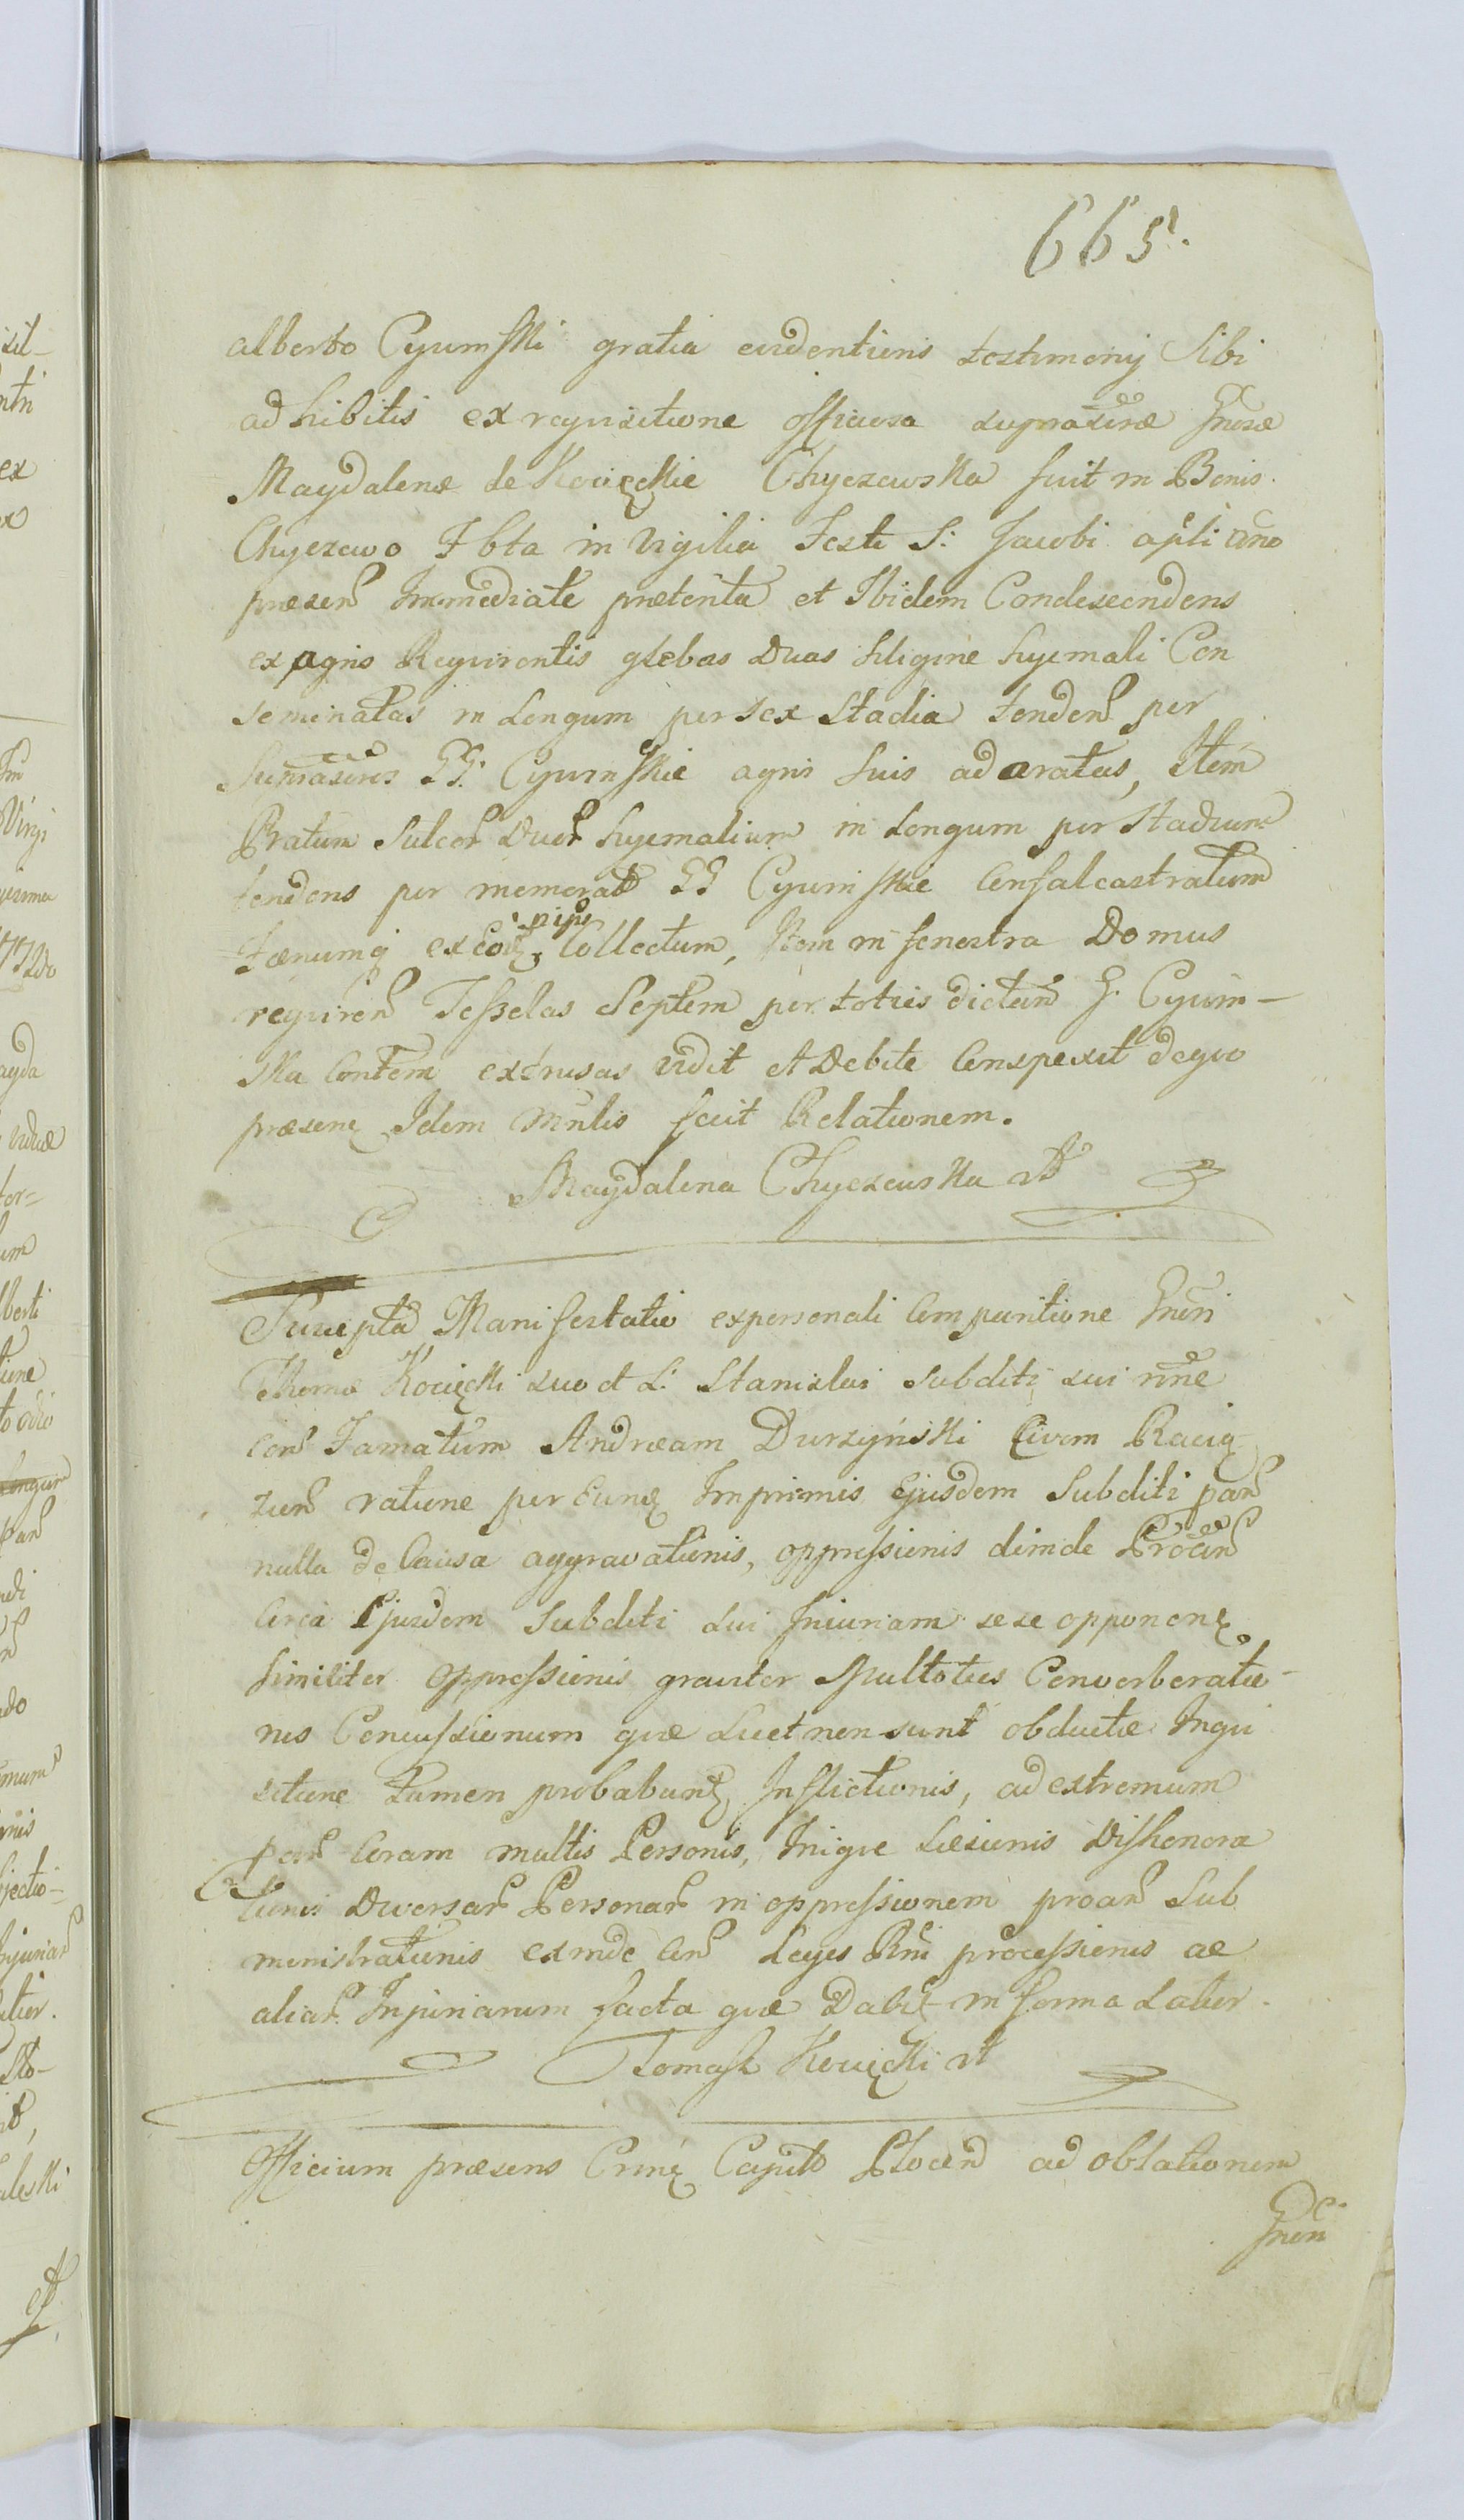 665.
alberto Cyumski gratia evidentioris testimonij sibi
adhibitis ex requisitione officiosa suprascrae Gnosae
Magdalenae de Kocięckie Chyczewska fuit in Bonis
Chyczewo Fbta in vigilia Festi S: Jacobi apli ano
praesen Immediate praeterita et Ibidem Condescendens
ex agris Requirentis glebas Duas siligine hyemali Con
seminatas in Longum per sex Stadia tenden per
Suprascros GG. Cyumskie agris suis adaratas, Item
Pratum Sulcor Duor hyemalium in Longum per stadium
tendens per memorat GG Cyumskie Consalcastratum
Faenumq ex eod Collectum, Item in fenestra Domus
requiren Tesselas Septem per toties dictam G. Cyum-
ska Contem extrusas vidit et Debite Conspexit de quo
praesens Idem Mnlis fecit Relationem.
Magdalena Chyczewska
Suscepta Manifestatio ex personali Comparitione Gnosi
Thomae Kocięcki suo et L. Stanislai subditi sui nne
con Famatum Andraeam Durzyński Civem Racią
zen ratione per Eund Imprimis Ejusdem Subditi
nulla de Causa aggravationis, oppressionis deinde
Circa Ejusdem Subditi sui Iniuriam sese opponen
similiter oppressionis graviter Multoties Converberatio-
nis Concussionum quae Licet non sunt obductae Inqui
sitione Tamen probabunt Inflictionis, ad extremum
coram multis Personis, Inique Laesionis Dishonora
tionis Diversar Personar in oppressionem Sub
ministrationis exinde con Leges Rni processionis ac
aliar Injuriarum facta quae Dabit in forma Latior.
Tomasz Kocięcki
Officium praesens Crine Capit Plocen ad oblationem
Gnosi